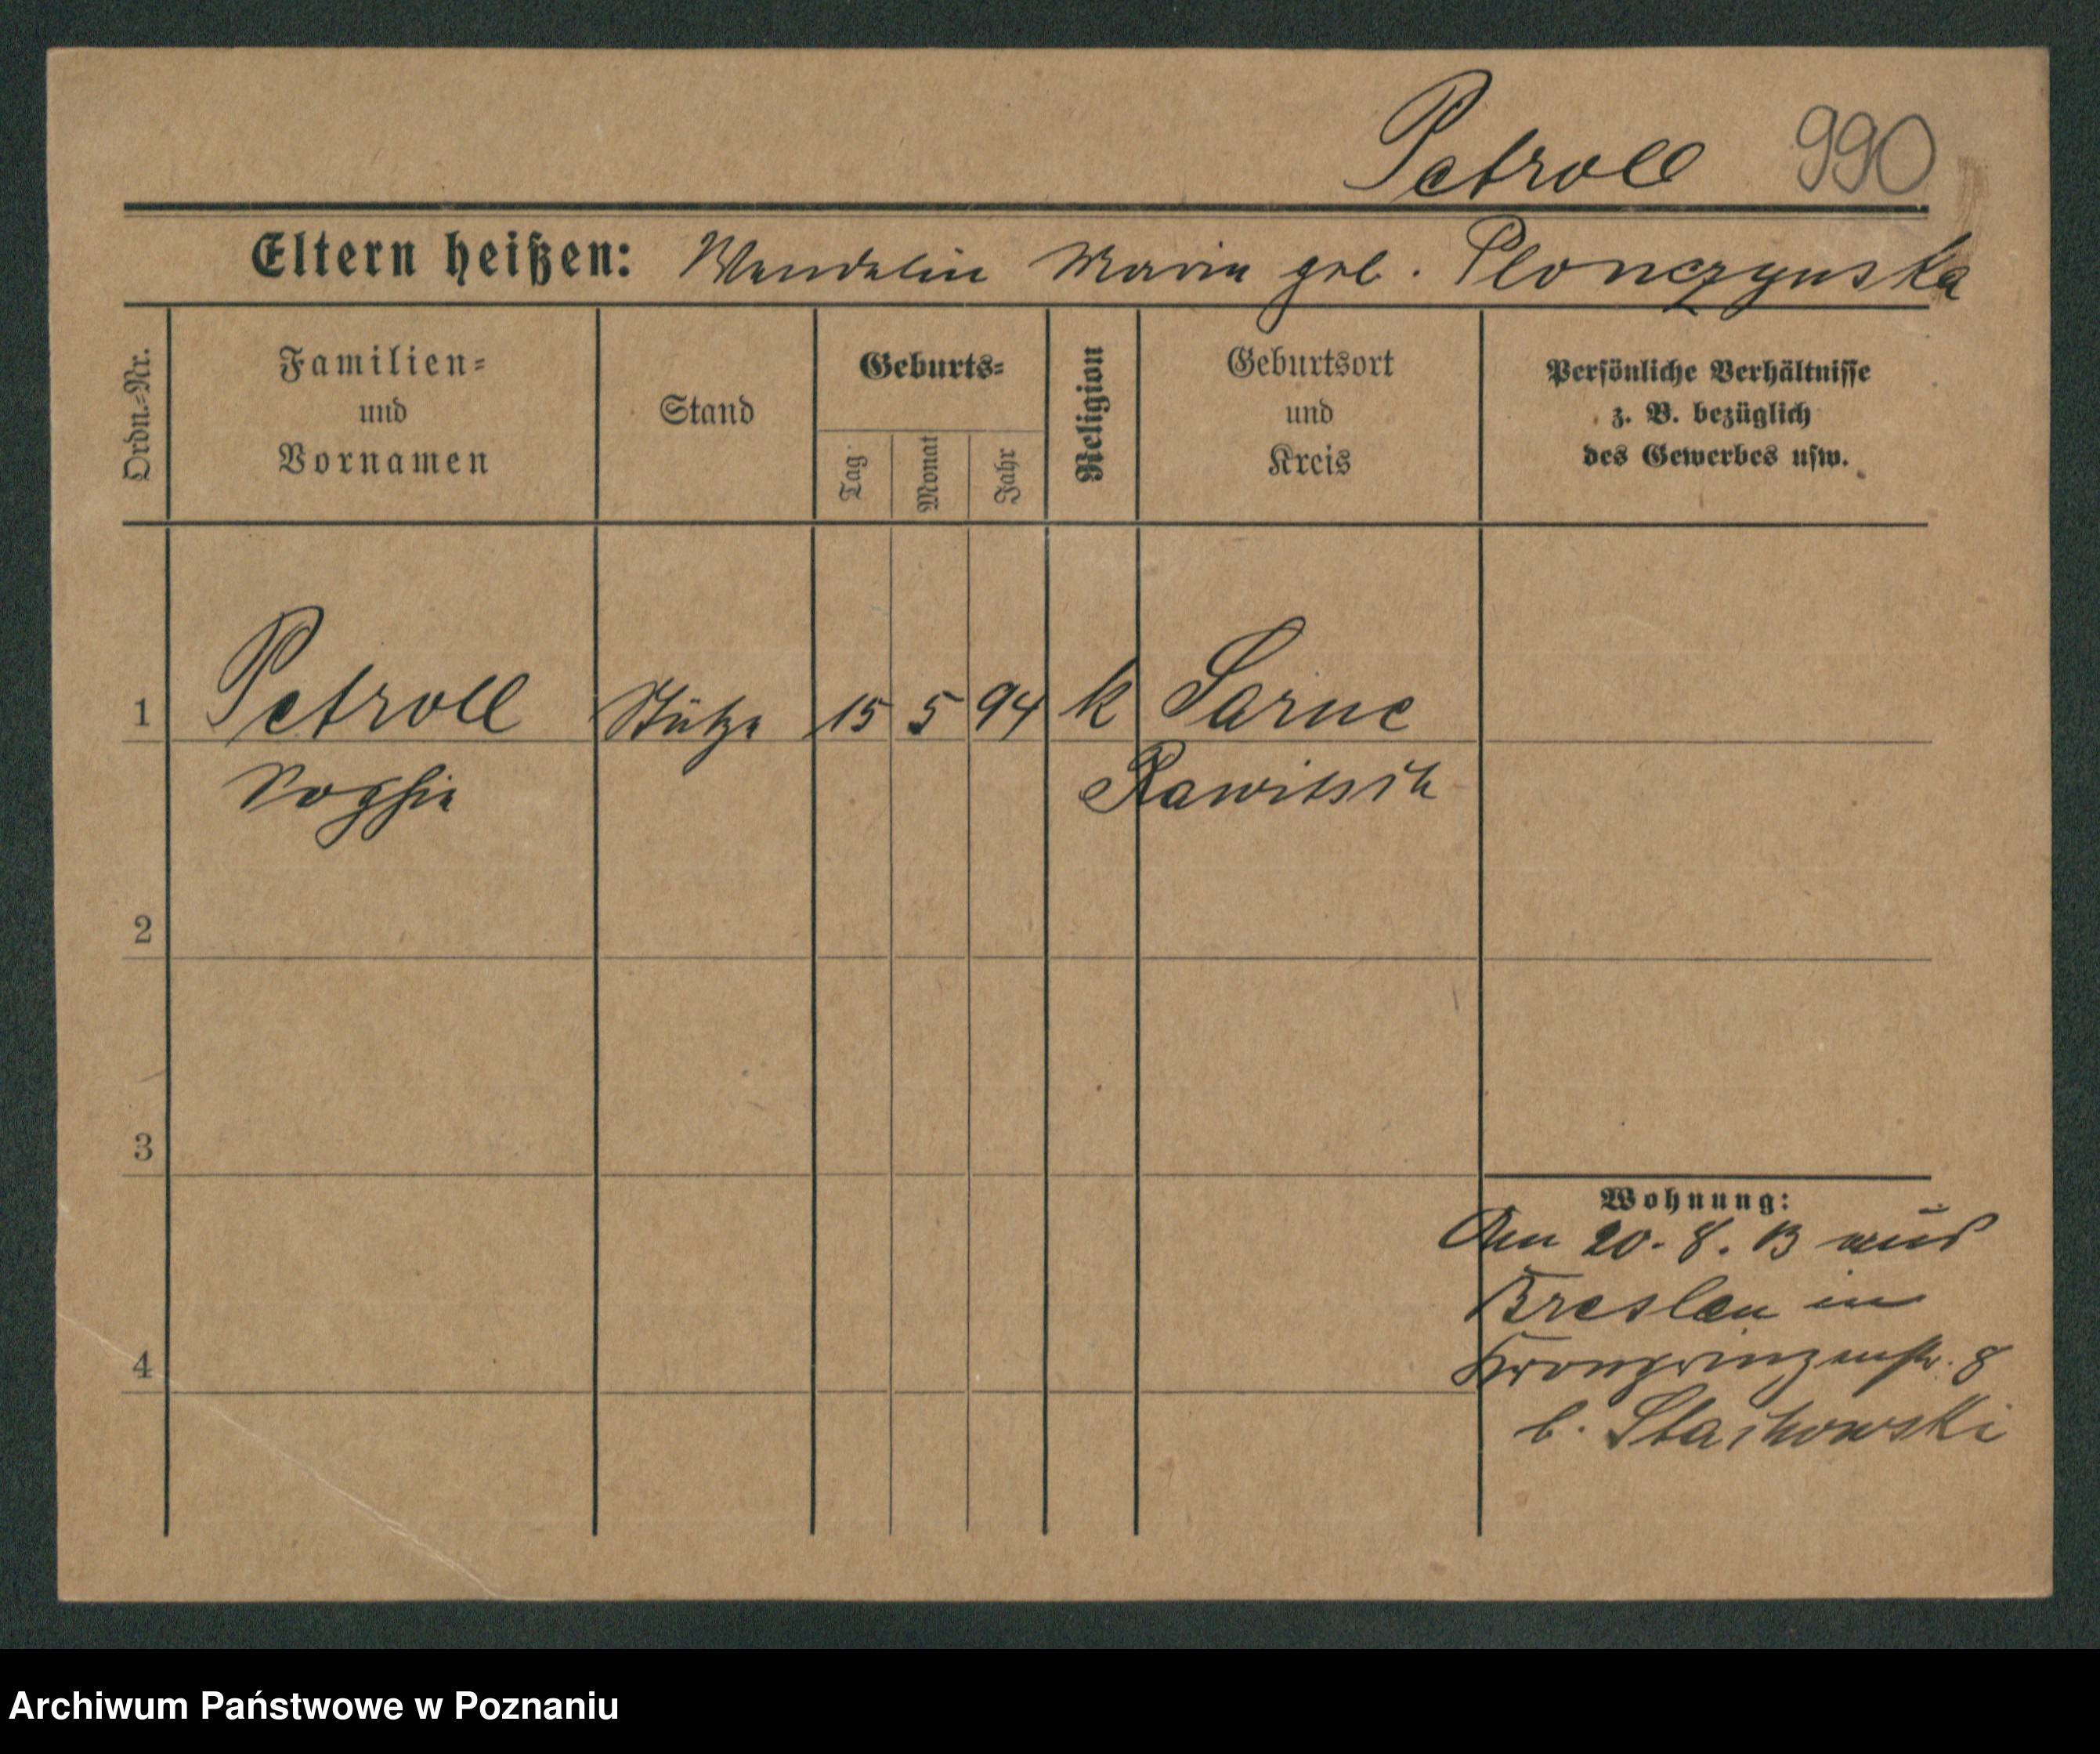 Petroll 990
Eltern heißen: Wendelin Marie geb. Plonczynska
Ordn.-Nr.
Familien=
und
Vornamen
Stand
Geburts=
Tag
Monat
Jahr
Religion
Geburtsort
und
Kreis
Persönliche Verhältnisse
z. B. bezüglich
des Gewerbes usw.
1 Petroll Stütze 15 5 94 k Sarne
Sophie Rawitsch
2
3
4
Wohnung:
Am 20. 8. 13 aus
Breslau in
Kronprinzenstr. 8
b. Stachowski
Archiwum Państwowe w Poznaniu